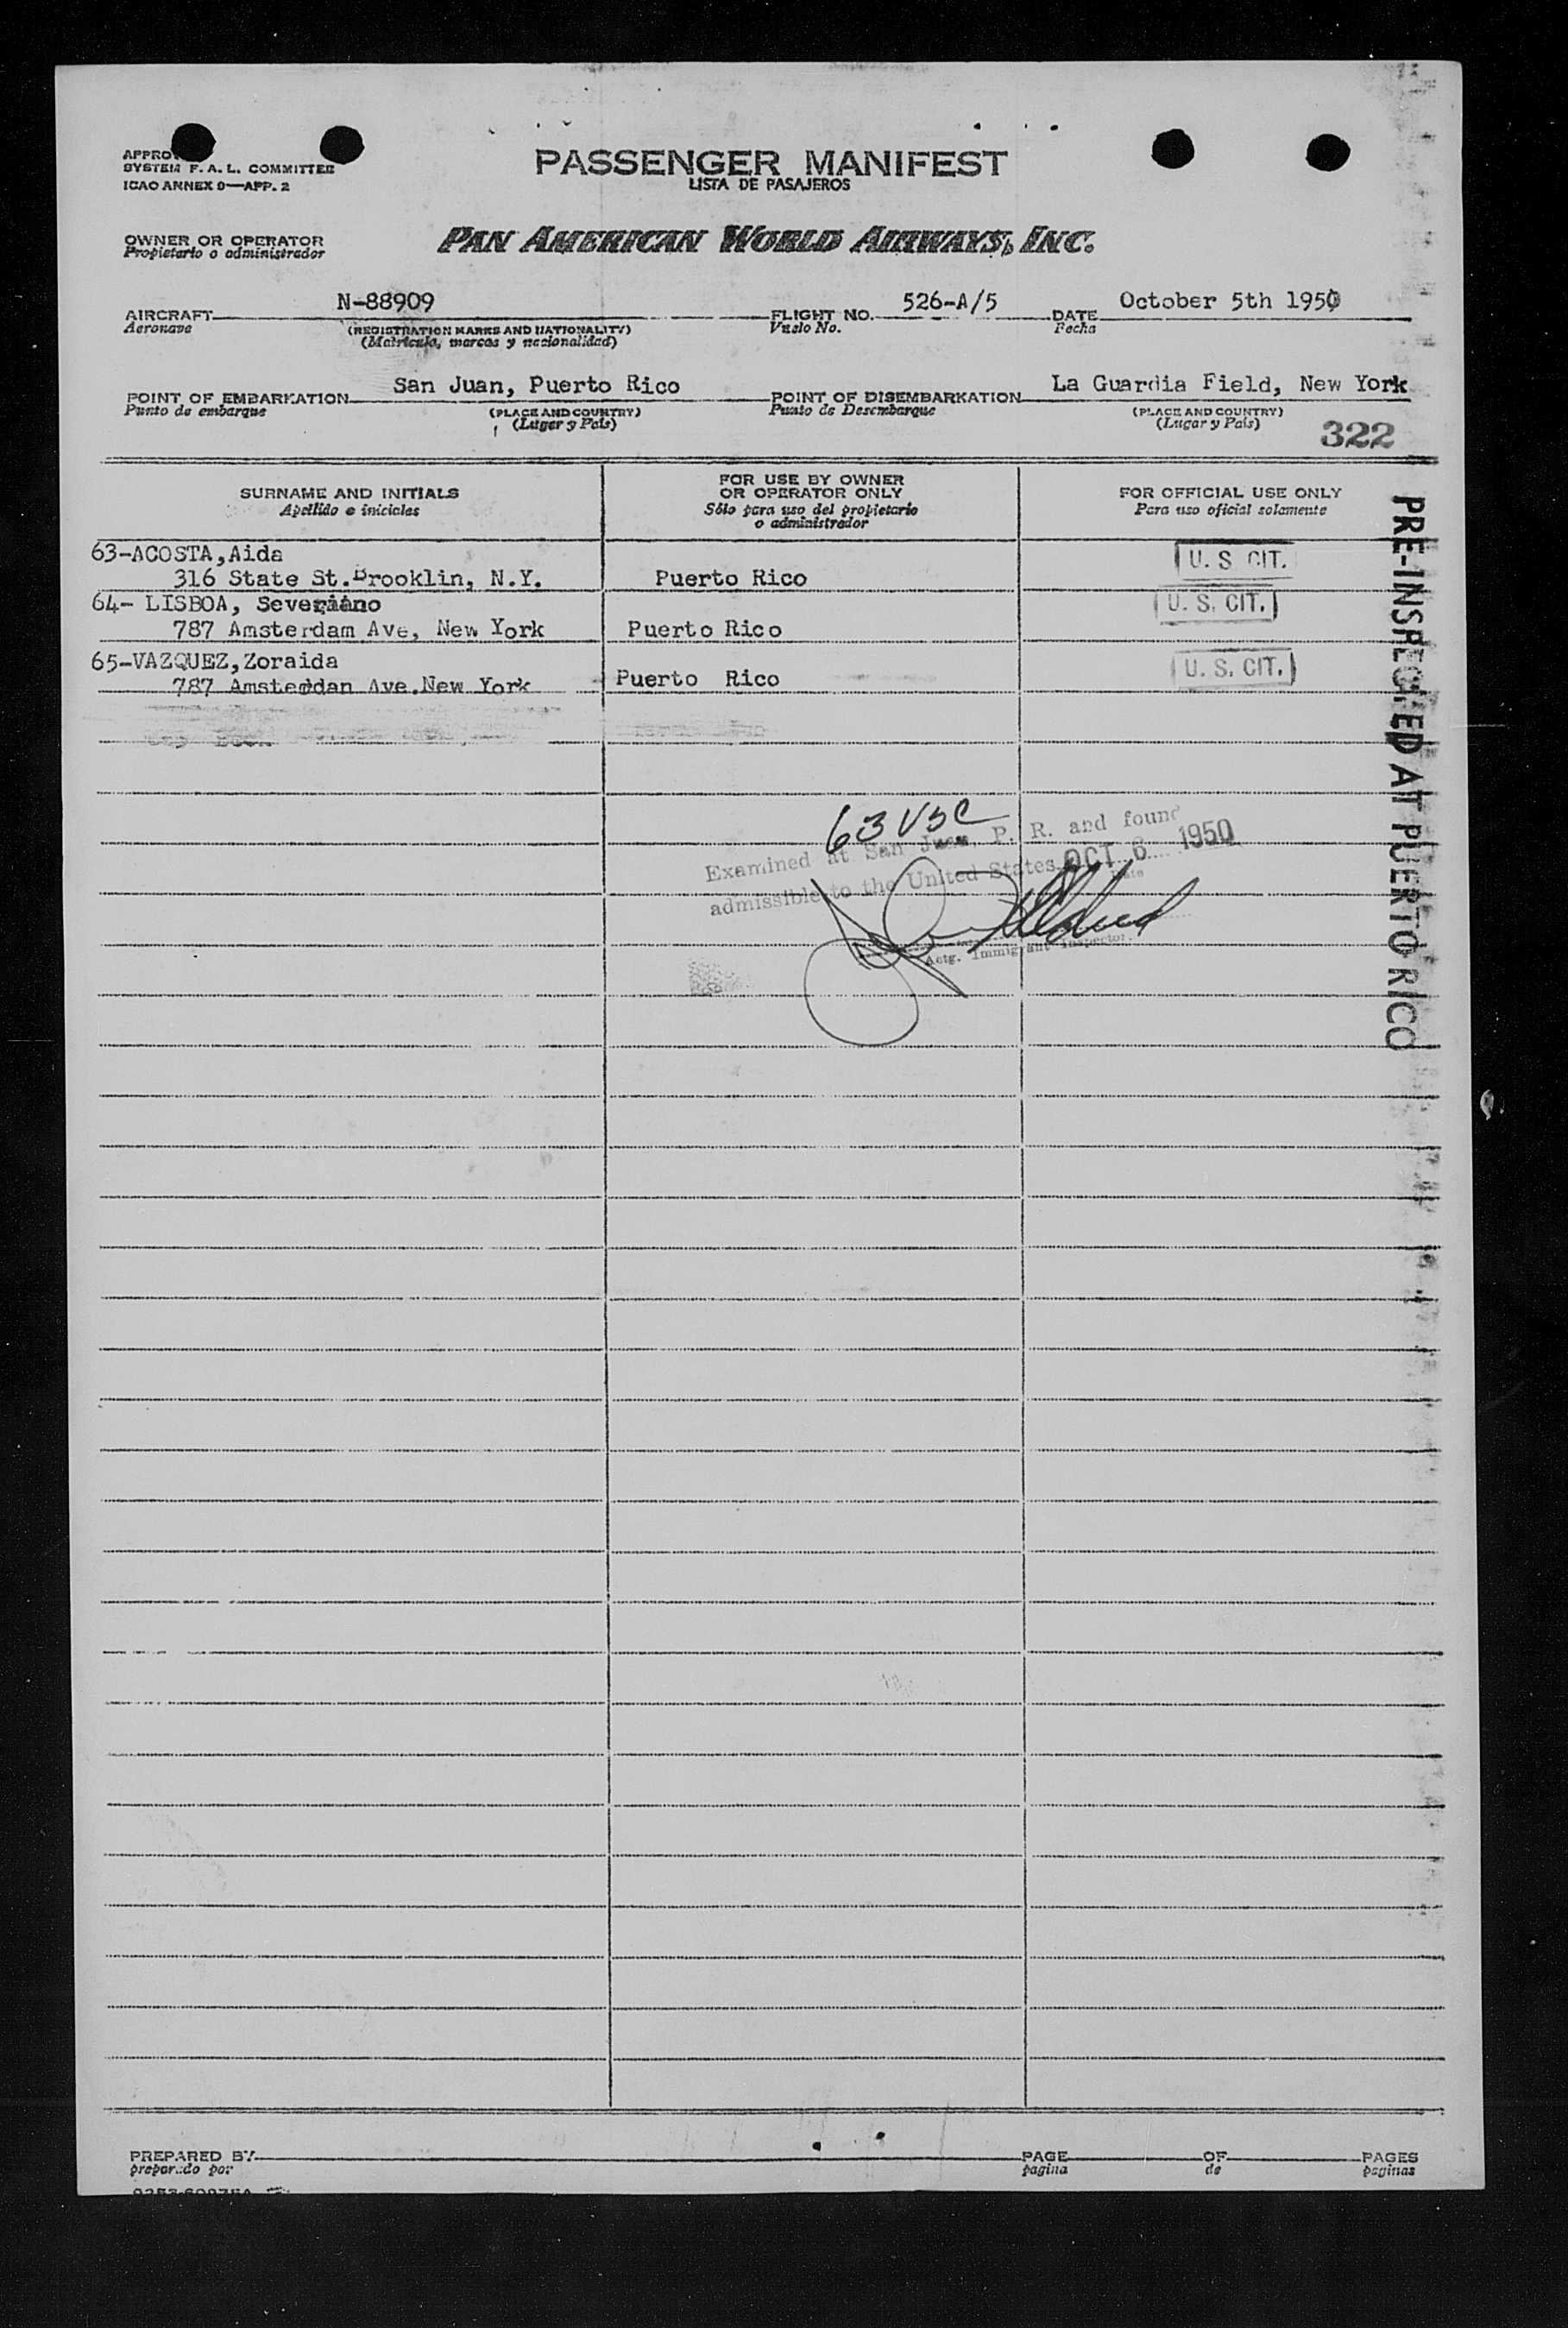 APPRO
SYSTEM F. A. L. COMMITTEE
ICAO ANNEX 9—APP. 2
PASSENGER MANIFEST
LISTA DE PASAJEROS
OWNER OR OPERATOR
Propietario o administrador
PAN AMERICAN WORLD AIRWAYS, INC.
AIRCRAFT N-88909 FLIGHT NO. 526-A/5 DATE October 5th 1950
Aeronave (REGISTRATION MARKS AND NATIONALITY) Vuelo No. Fecha
(Matricula, marcas y nacionalidad)
POINT OF EMBARKATION San Juan, Puerto Rico POINT OF DISEMBARKATION La Guardia Field, New York
Punto de embarque (PLACE AND COUNTRY) Punto de Desembarque (PLACE AND COUNTRY)
(Lugar y País) (Lugar y País)
322
SURNAME AND INITIALS
Apellido e iniciales
FOR USE BY OWNER
OR OPERATOR ONLY
Sólo para uso del propietario
o administrador
FOR OFFICIAL USE ONLY
Para uso oficial solamente
63-ACOSTA,Aida U. S. CIT.
316 State St.Brooklin, N.Y. Puerto Rico
64- LISBOA, Severiano U. S. CIT.
787 Amsterdam Ave, New York Puerto Rico
65-VAZQUEZ,Zoraida U. S. CIT.
787 Amsteddan Ave.New York Puerto Rico
PRE-INSPECTED AT PUERTO RICO
63 USC
Examined at San Juan, P. R. and found
admissible to the United States OCT 6 1950
Date
Actg. Immigrant Inspector.
PREPARED BY PAGE OF PAGES
preparado por pagina de paginas